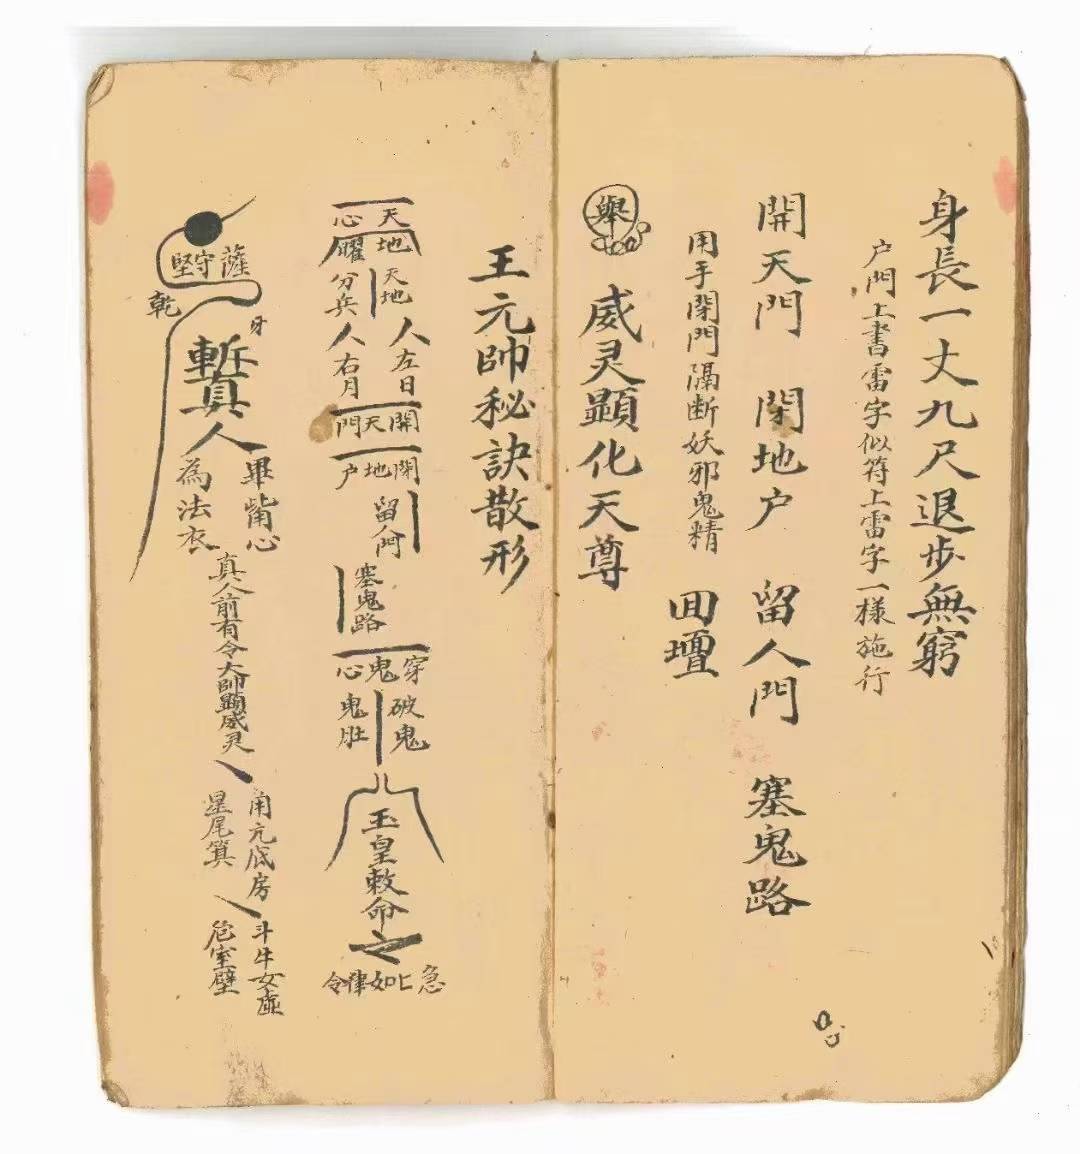 身長一丈九尺退步無窮
户門上書雷字似符上雷字一樣施行
開天門 閉地户 留人門 塞鬼路
用手閉門隔断妖邪鬼精 回壇
舉 威灵顕化天尊
王元帥秘訣散形
天心
地曜
天地 分兵
人左日 人右月
開天門
閉地户
留人門
塞鬼路
穿鬼心
破鬼 鬼肚
玉皇敕命之
急如律令
薩守堅
乾
真人
畢觜心
為法衣
真人前有令大帥顕威灵
角亢底房
星尾箕
斗牛女虛
危室壁